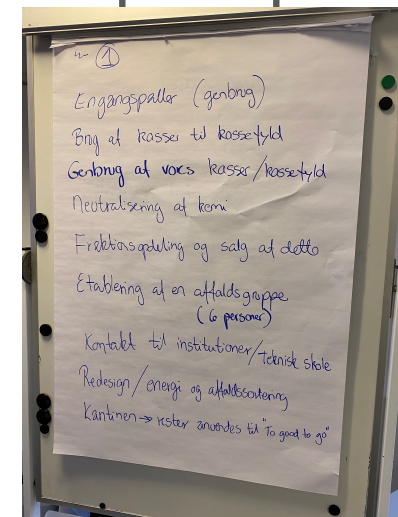 1
Engangspaller (genbrug)
Brug af kasser til kassefyld
Genbrug af voks kasser/kassefyld
Neutralisering af kemi
Fraktionsopdeling og salg af dette
Etablering af en affaldsgruppe
(6 personer)
Kontakt til institutioner/teknisk skole
Redesign/energi og affaldssortering
Kantinen → rester anvendes til "To good to go"